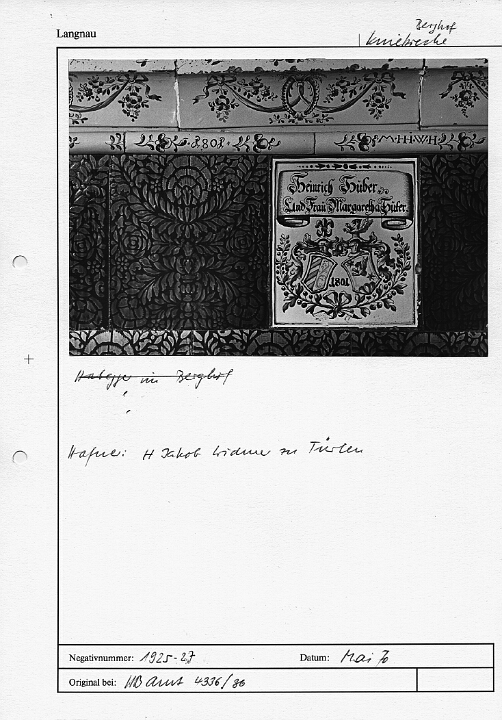 Langnau
Berghof
Kniebreche
1801
M·H·W·H
Heinrich Huber
Und Frau Margaretha Huber
1801
im Berghof
Hafner: H Jakob Widmer zu Türlen
Negativnummer: 1925-27 Datum: Mai 70
Original bei: HBAmt 4336/88